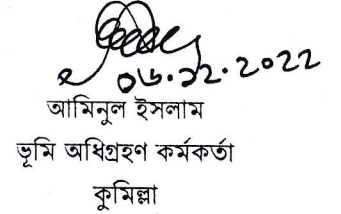 ০৬.১২.২০২২
আমিনুল ইসলাম
ভূমি অধিগ্রহণ কর্মকর্তা
কুমিল্লা